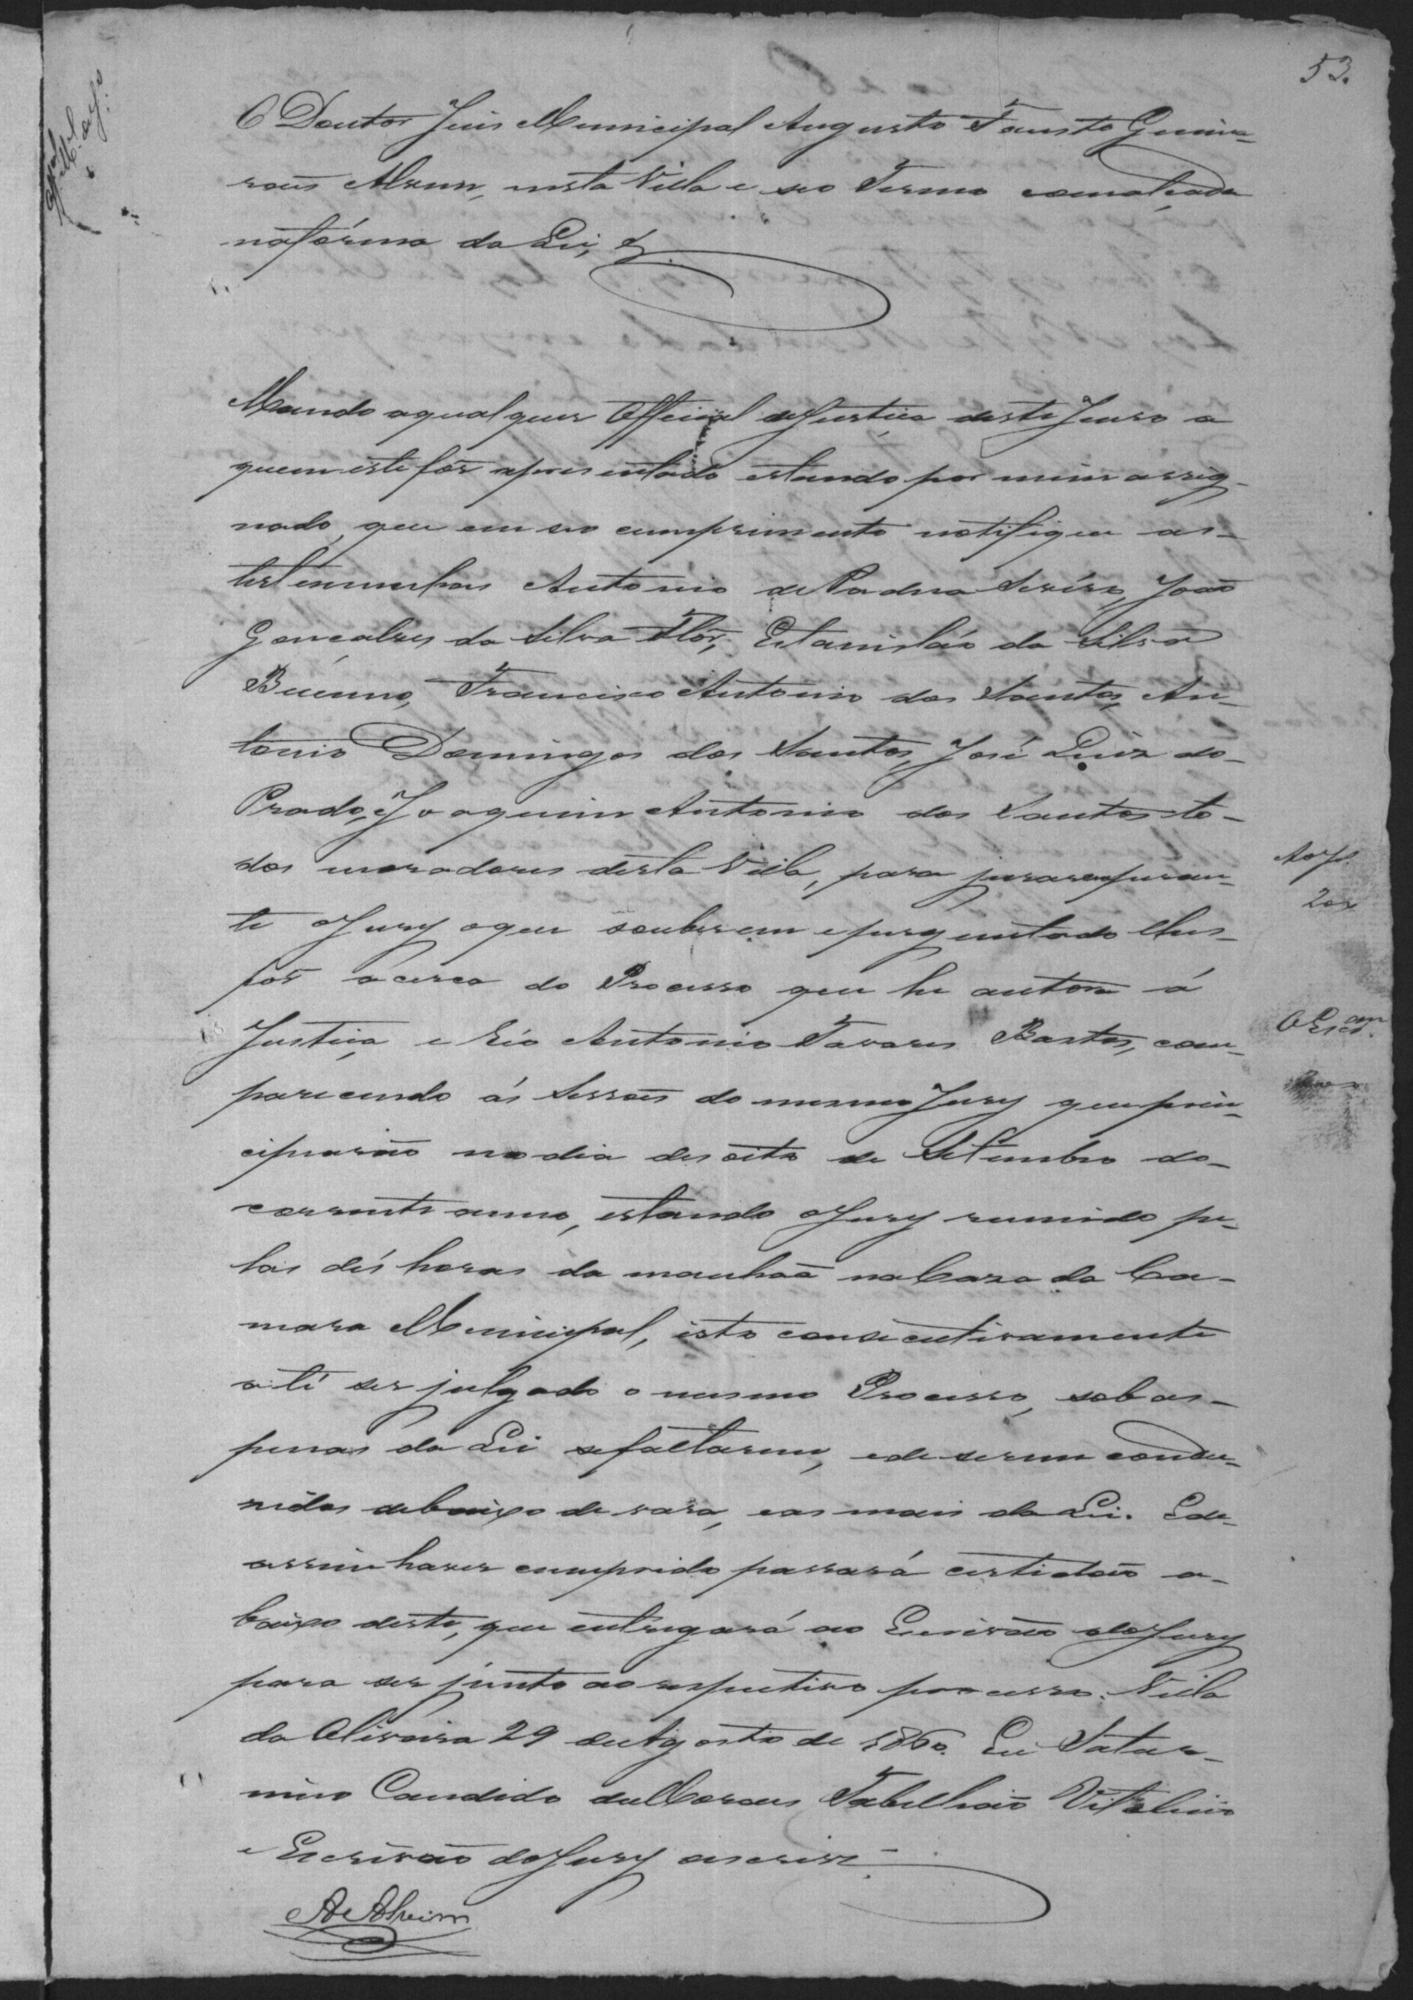 53.
O Doutor Juis Municipal Augusto Fausto Guima-
raes nesta Villa e seo Termo com alçada
na fórma da Lei, &
Mando a qual quer Official de Justiça deste Juiso a
quem este fôr apresentado estando por mim assig-
nado, que em seo cumprimento notifique as-
testemunhas Antonio de Padua João
Gonçalves da Silva Flôr, Estanisláo da Silva
Buenno, Francisco Antonio dos Santos, An-
tonio Domingos dos Santos, José Luiz do-
Prado, e Joaquim Antonio dos Santos to-
dos moradores desta Villa, para jurarem peran-
te o Jury o que souberem e perguntado lhes-
fôr a cerca do Processo que he autora á
Justiça, e Réo Antonio Tavares Bastos, com-
parecendo ás Sessões do mesmo Jury que prin-
cipiarão no dia desoito de Setembro do-
corrente anno, estando o Jury reunido pe-
las dés horas da manhaã na Caza da Ca-
mara Municipal, isto consecutivamente
até ser julgado o mesmo Processo, sob as-
penas da Lei se faltarem, e de serem condu-
sidos debaixo de vara, e as mais da Lei. E de-
assim haver cumprido passará certidão a-
baixo deste, que entregará ao Escrivão do Jury
para ser junto ao respectivo processo. Villa
da Oliveira 29 de Agosto de 1860. Eu Satur-
nino Candido de Moraes Tabellião Vitalicio
e Escrivão do Jury escrivi